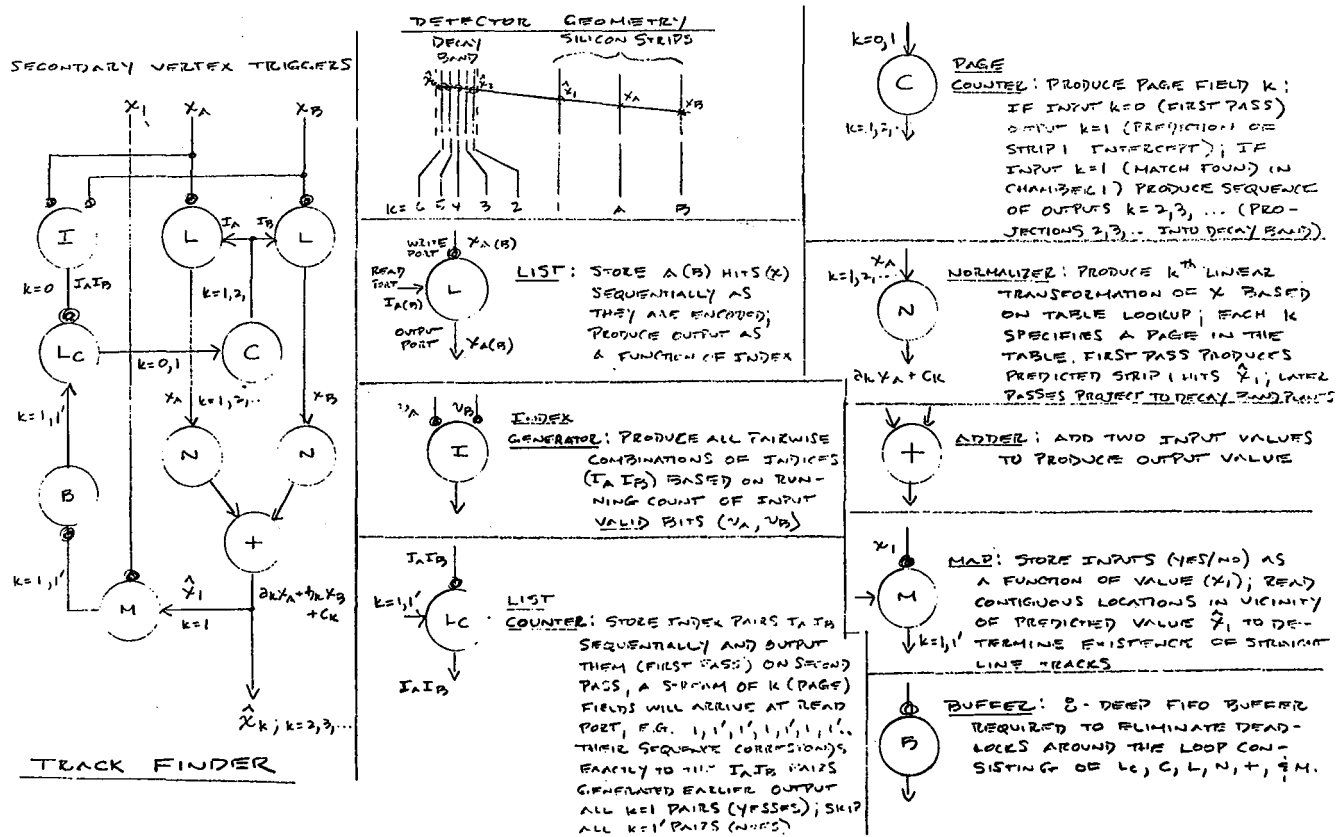 SECONDARY VERTEX TRIGGERS
x₁
x_A
x_B
I
L
I_A
I_B
L
k=0
I_A I_B
k=1,2,
L_C
k=0,1
C
k=1,1'
x_A
k=1,2,..
x_B
N
N
B
+
k=1,1'
M
x̂₁
k=1
a_k x_A + b_k x_B
+ c_k
x̂_k ; k=2,3,...
TRACK FINDER
DETECTOR GEOMETRY
DECAY
BAND
SILICON STRIPS
x̂₂
x̂₁
x_A
x_B
k= 6 5 4 3 2 1 A B
WRITE
PORT
x_A(B)
READ
PORT
I_A(B)
L
OUTPUT
PORT
x_A(B)
LIST: STORE A(B) HITS (x)
SEQUENTIALLY AS
THEY ARE ENCODED;
PRODUCE OUTPUT AS
A FUNCTION OF INDEX
v_A
v_B
I
INDEX
GENERATOR: PRODUCE ALL PAIRWISE
COMBINATIONS OF INDICES
(I_A I_B) BASED ON RUN-
NING COUNT OF INPUT
VALID BITS (v_A, v_B)
I_A I_B
k=1,1'
L_C
I_A I_B
LIST
COUNTER: STORE INDEX PAIRS I_A I_B
SEQUENTIALLY AND OUTPUT
THEM (FIRST PASS) ON SECOND
PASS, A STREAM OF K (PAGE)
FIELDS WILL ARRIVE AT READ
PORT, E.G. 1,1',1',1,1',1,1'..
THEIR SEQUENCE CORRESPONDS
EXACTLY TO THE I_A I_B PAIRS
GENERATED EARLIER OUTPUT
ALL k=1 PAIRS (YESSES); SKIP
ALL k=1' PAIRS (NOES)
k=0,1
C
k=1,2,..
PAGE
COUNTER: PRODUCE PAGE FIELD k;
IF INPUT k=0 (FIRST PASS)
OUTPUT k=1 (PREDICTION OF
STRIP 1 INTERCEPT); IF
INPUT k=1 (MATCH FOUND IN
CHAMBER 1) PRODUCE SEQUENCE
OF OUTPUTS k=2,3,... (PRO-
JECTIONS 2,3,.. INTO DECAY BAND)
x_A
k=1,2,...
N
a_k x_A + c_k
NORMALIZER: PRODUCE kᵗʰ LINEAR
TRANSFORMATION OF X BASED
ON TABLE LOOKUP; EACH K
SPECIFIES A PAGE IN THE
TABLE. FIRST PASS PRODUCES
PREDICTED STRIP 1 HITS x̂₁; LATER
PASSES PROJECT TO DECAY BAND PLANES
+
ADDER: ADD TWO INPUT VALUES
TO PRODUCE OUTPUT VALUE
x₁
M
k=1,1'
MAP: STORE INPUTS (YES/NO) AS
A FUNCTION OF VALUE (x₁); READ
CONTIGUOUS LOCATIONS IN VICINITY
OF PREDICTED VALUE x̂₁ TO DE-
TERMINE EXISTENCE OF STRAIGHT
LINE TRACKS
B
BUFFER: -DEEP FIFO BUFFER
REQUIRED TO ELIMINATE DEAD-
LOCKS AROUND THE LOOP CON-
SISTING OF L_C, C, L, N, +, & M.